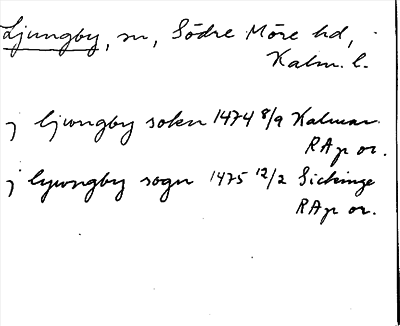 Ljungby, sn, Södre Möre hd,
Kalm. l.
j liwngby sokn 1474 8/9 Kalmar
RAp or.
j lywngby sogn 1475 12/2 Sickinge
RAp or.